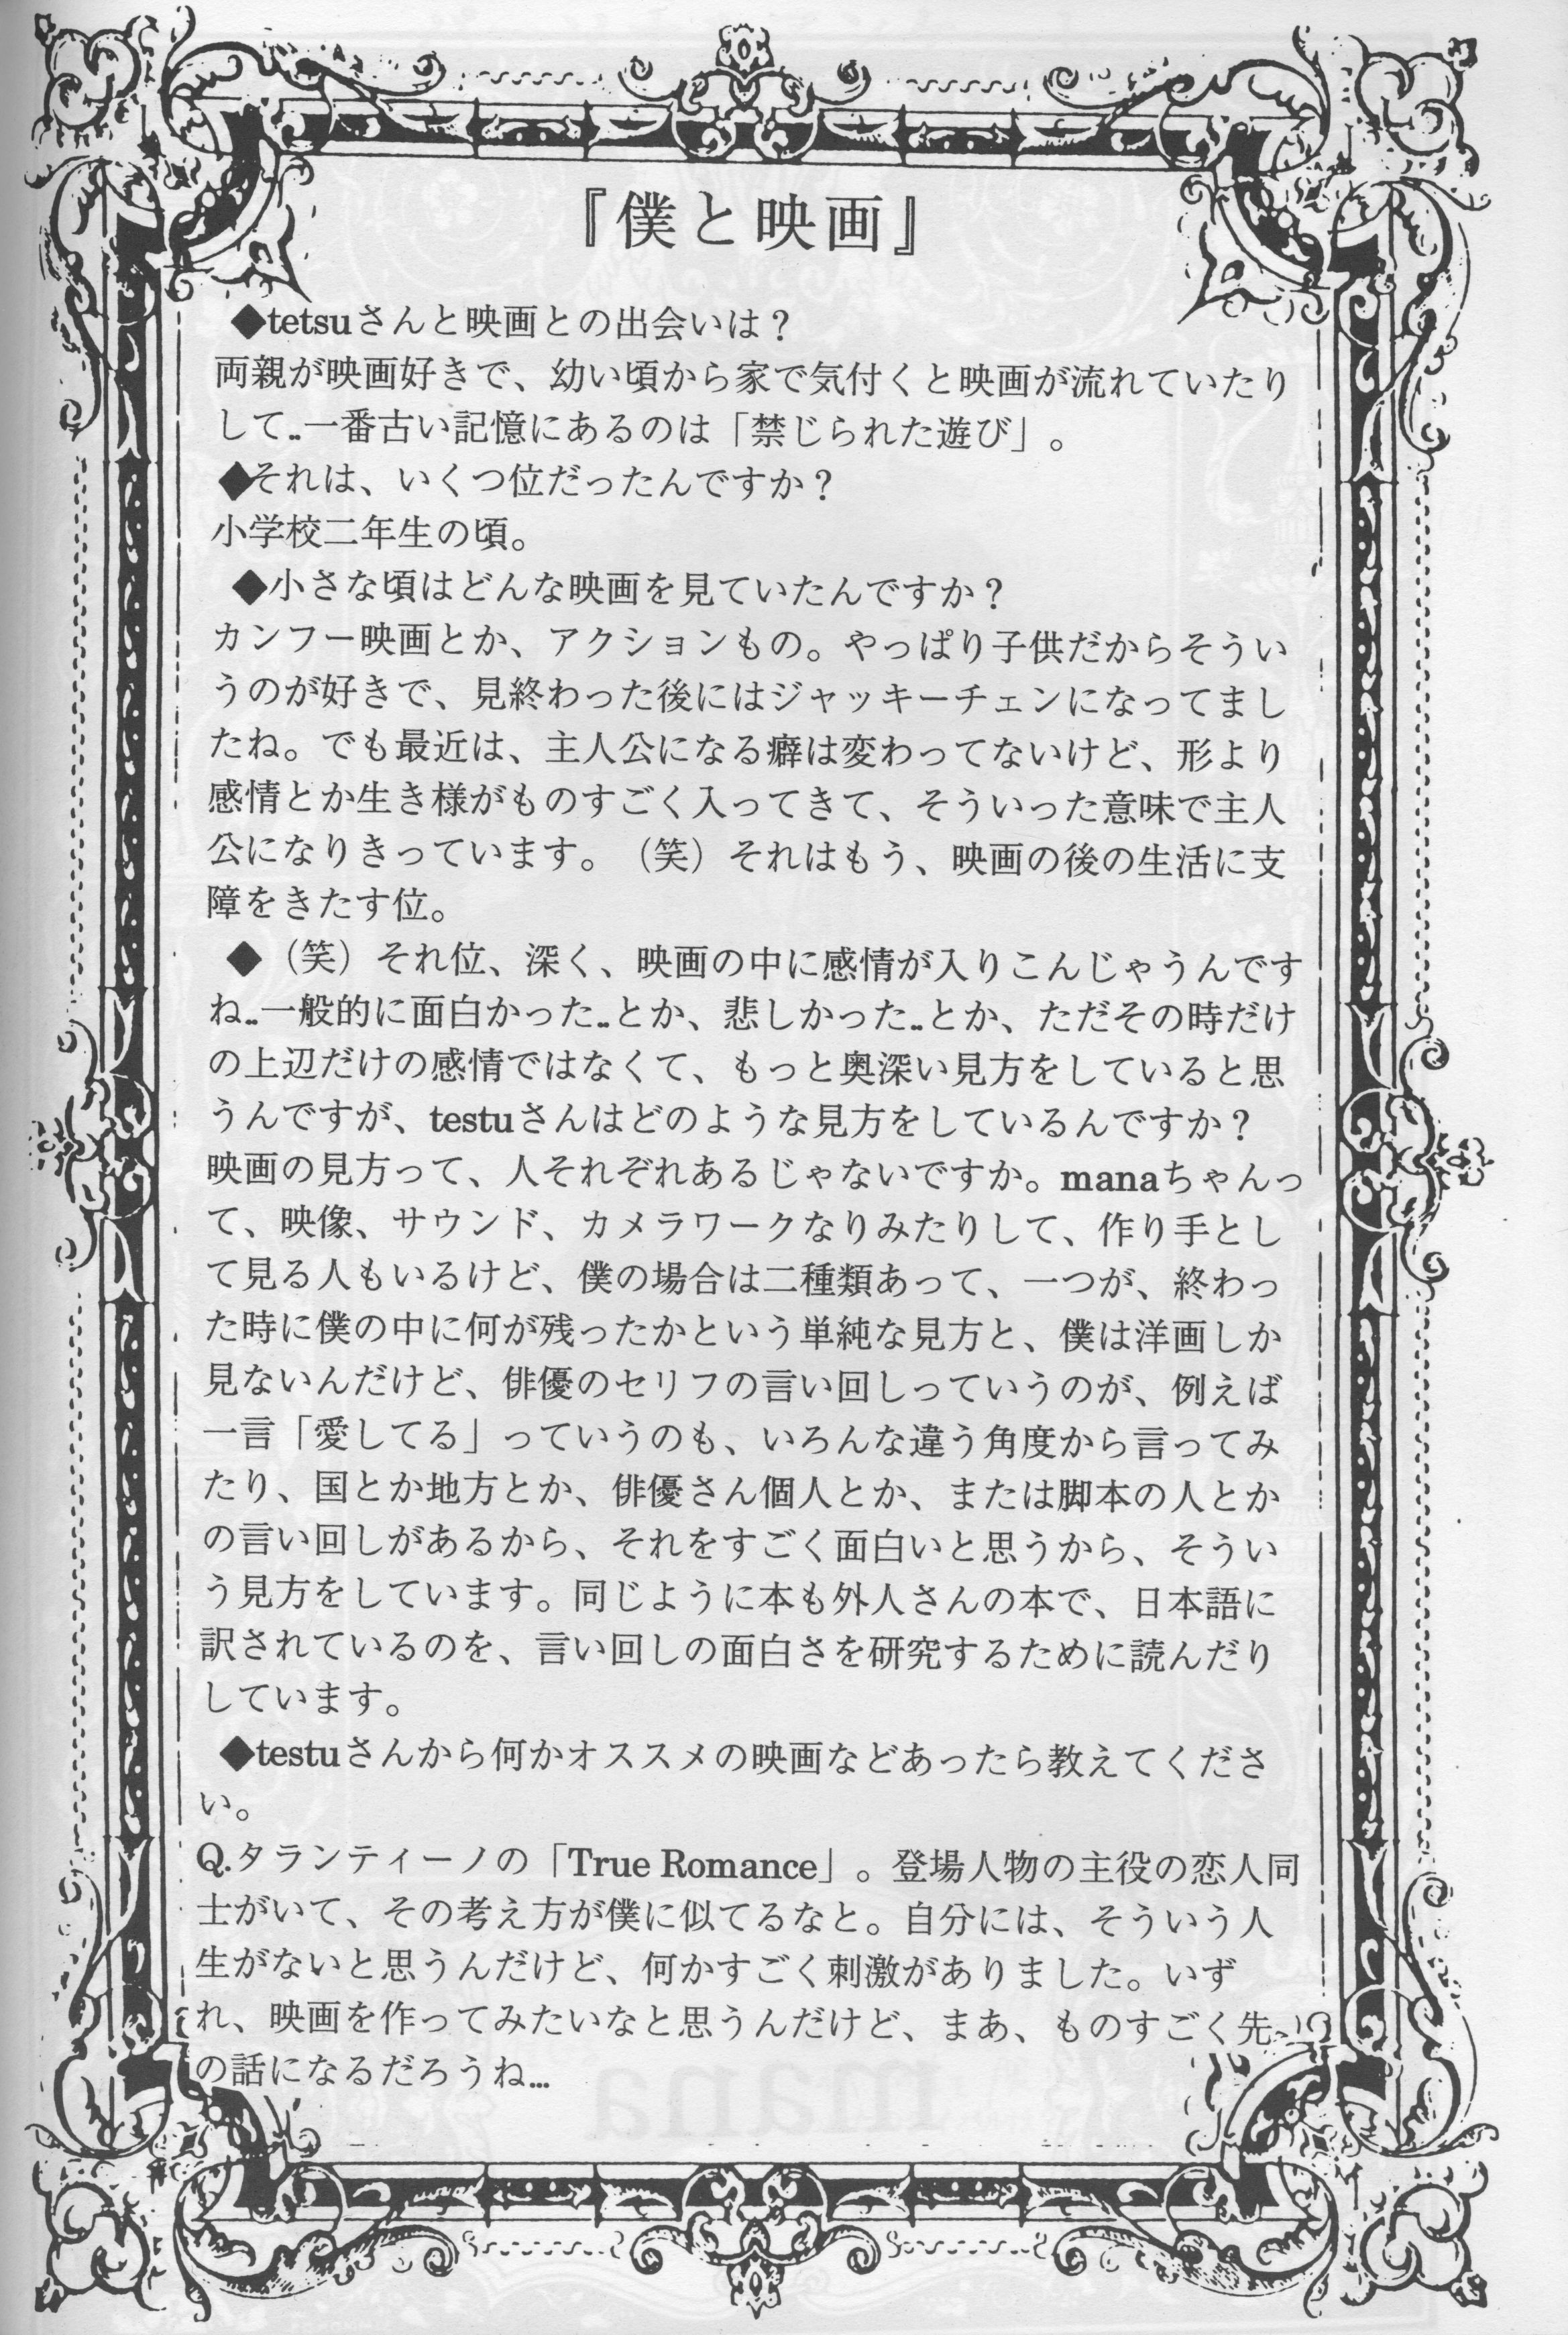 『僕と映画』
◆tetsuさんと映画との出会いは？
両親が映画好きで、幼い頃から家で気付くと映画が流れていたり
して..一番古い記憶にあるのは「禁じられた遊び」。
◆それは、いくつ位だったんですか？
小学校二年生の頃。
◆小さな頃はどんな映画を見ていたんですか？
カンフー映画とか、アクションもの。やっぱり子供だからそうい
うのが好きで、見終わった後にはジャッキーチェンになってまし
たね。でも最近は、主人公になる癖は変わってないけど、形より
感情とか生き様がものすごく入ってきて、そういった意味で主人
公になりきっています。（笑）それはもう、映画の後の生活に支
障をきたす位。
◆（笑）それ位、深く、映画の中に感情が入りこんじゃうんです
ね..一般的に面白かった..とか、悲しかった..とか、ただその時だけ
の上辺だけの感情ではなくて、もっと奥深い見方をしていると思
うんですが、testuさんはどのような見方をしているんですか？
映画の見方って、人それぞれあるじゃないですか。manaちゃんっ
て、映像、サウンド、カメラワークなりみたりして、作り手とし
て見る人もいるけど、僕の場合は二種類あって、一つが、終わっ
た時に僕の中に何が残ったかという単純な見方と、僕は洋画しか
見ないんだけど、俳優のセリフの言い回しっていうのが、例えば
一言「愛してる」っていうのも、いろんな違う角度から言ってみ
たり、国とか地方とか、俳優さん個人とか、または脚本の人とか
の言い回しがあるから、それをすごく面白いと思うから、そうい
う見方をしています。同じように本も外人さんの本で、日本語に
訳されているのを、言い回しの面白さを研究するために読んだり
しています。
◆testuさんから何かオススメの映画などあったら教えてくださ
い。
Q.タランティーノの「True Romance」。登場人物の主役の恋人同
士がいて、その考え方が僕に似てるなと。自分には、そういう人
生がないと思うんだけど、何かすごく刺激がありました。いず
れ、映画を作ってみたいなと思うんだけど、まあ、ものすごく先
の話になるだろうね...